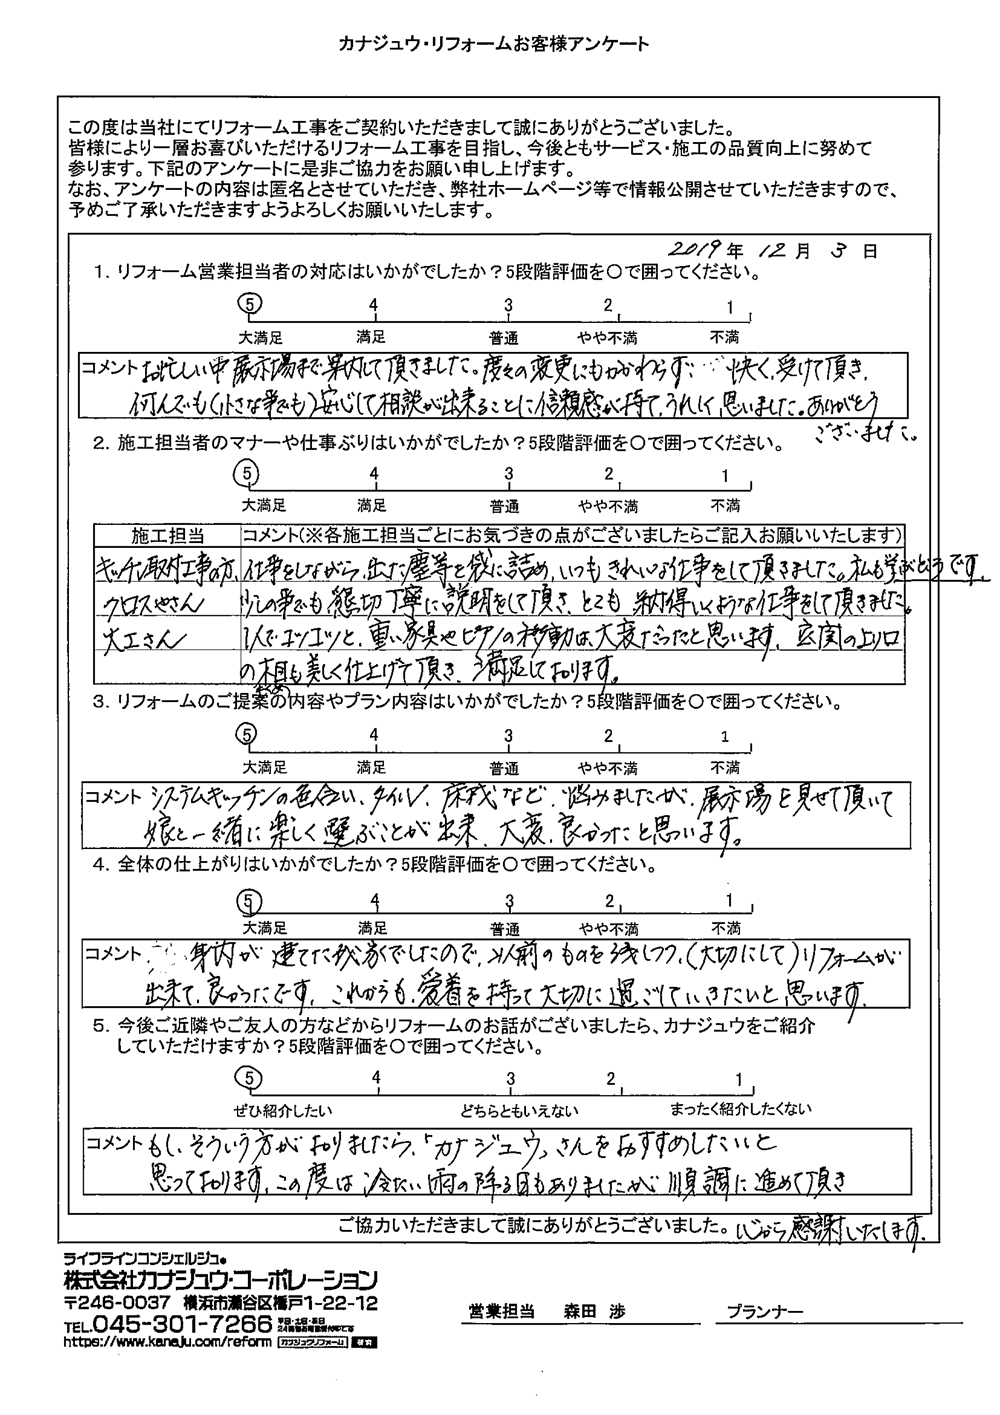 カナジュウ・リフォームお客様アンケート
この度は当社にてリフォーム工事をご契約いただきまして誠にありがとうございました。
皆様により一層お喜びいただけるリフォーム工事を目指し、今後ともサービス・施工の品質向上に努めて
参ります。下記のアンケートに是非ご協力をお願い申し上げます。
なお、アンケートの内容は匿名とさせていただき、弊社ホームページ等で情報公開させていただきますので、
予めご了承いただきますようよろしくお願いいたします。
2019年 12月 3日
1. リフォーム営業担当者の対応はいかがでしたか？5段階評価を○で囲ってください。
5 4 3 2 1
大満足 満足 普通 やや不満 不満
コメント お忙しい中展示場まで案内して頂きました。度々の変更にもかかわらず 快く、受けて頂き、
何んでも(小さな事でも)安心して相談が出来ることに信頼感が持て、うれしく思いました。ありがとう
ございました。
2. 施工担当者のマナーや仕事ぶりはいかがでしたか？5段階評価を○で囲ってください。
5 4 3 2 1
大満足 満足 普通 やや不満 不満
施工担当 コメント(※各施工担当ごとにお気づきの点がございましたらご記入お願いいたします)
キッチン取付工事の方、 仕事をしながら、出た塵等を袋に詰め、いつもきれいな仕事をして頂きました。私も学ぶところです。
クロスやさん 少しの事でも懇切丁寧に説明をして頂き、とても納得いくような仕事をして頂きました。
大工さん 1人でコツコツと、重い家具やピアノの移動は大変だったと思います。玄関の上り口
の相も美しく仕上げて頂き、満足しております。
3. リフォームのご提案の内容やプラン内容はいかがでしたか？5段階評価を○で囲ってください。
5 4 3 2 1
大満足 満足 普通 やや不満 不満
コメント システムキッチンの色合い、タイル、床材など、悩みましたが、展示場を見せて頂いて
娘と一緒に楽しく選ぶことが出来、大変、良かったと思います。
4. 全体の仕上がりはいかがでしたか？5段階評価を○で囲ってください。
5 4 3 2 1
大満足 満足 普通 やや不満 不満
コメント 身内が建てた我家でしたので、以前のものを残しつつ、(大切にして)リフォームが
出来て、良かったです。これからも、愛着を持って大切に過ごしていきたいと思います。
5. 今後ご近隣やご友人の方などからリフォームのお話がございましたら、カナジュウをご紹介
していただけますか？5段階評価を○で囲ってください。
5 4 3 2 1
ぜひ紹介したい どちらともいえない まったく紹介したくない
コメント もし、そういう方がおりましたら、「カナジュウ」さんをおすすめしたいと
思っております。この度は冷たい雨の降る日もありましたが順調に進めて頂き
ご協力いただきまして誠にありがとうございました。心から感謝いたします。
ライフラインコンシェルジュ®
株式会社カナジュウ・コーポレーション
〒246-0037 横浜市瀬谷区橋戸1-22-12
TEL.045-301-7266
https://www.kanaju.com/reform カナジュウリフォーム 検索
営業担当 森田 渉 プランナー